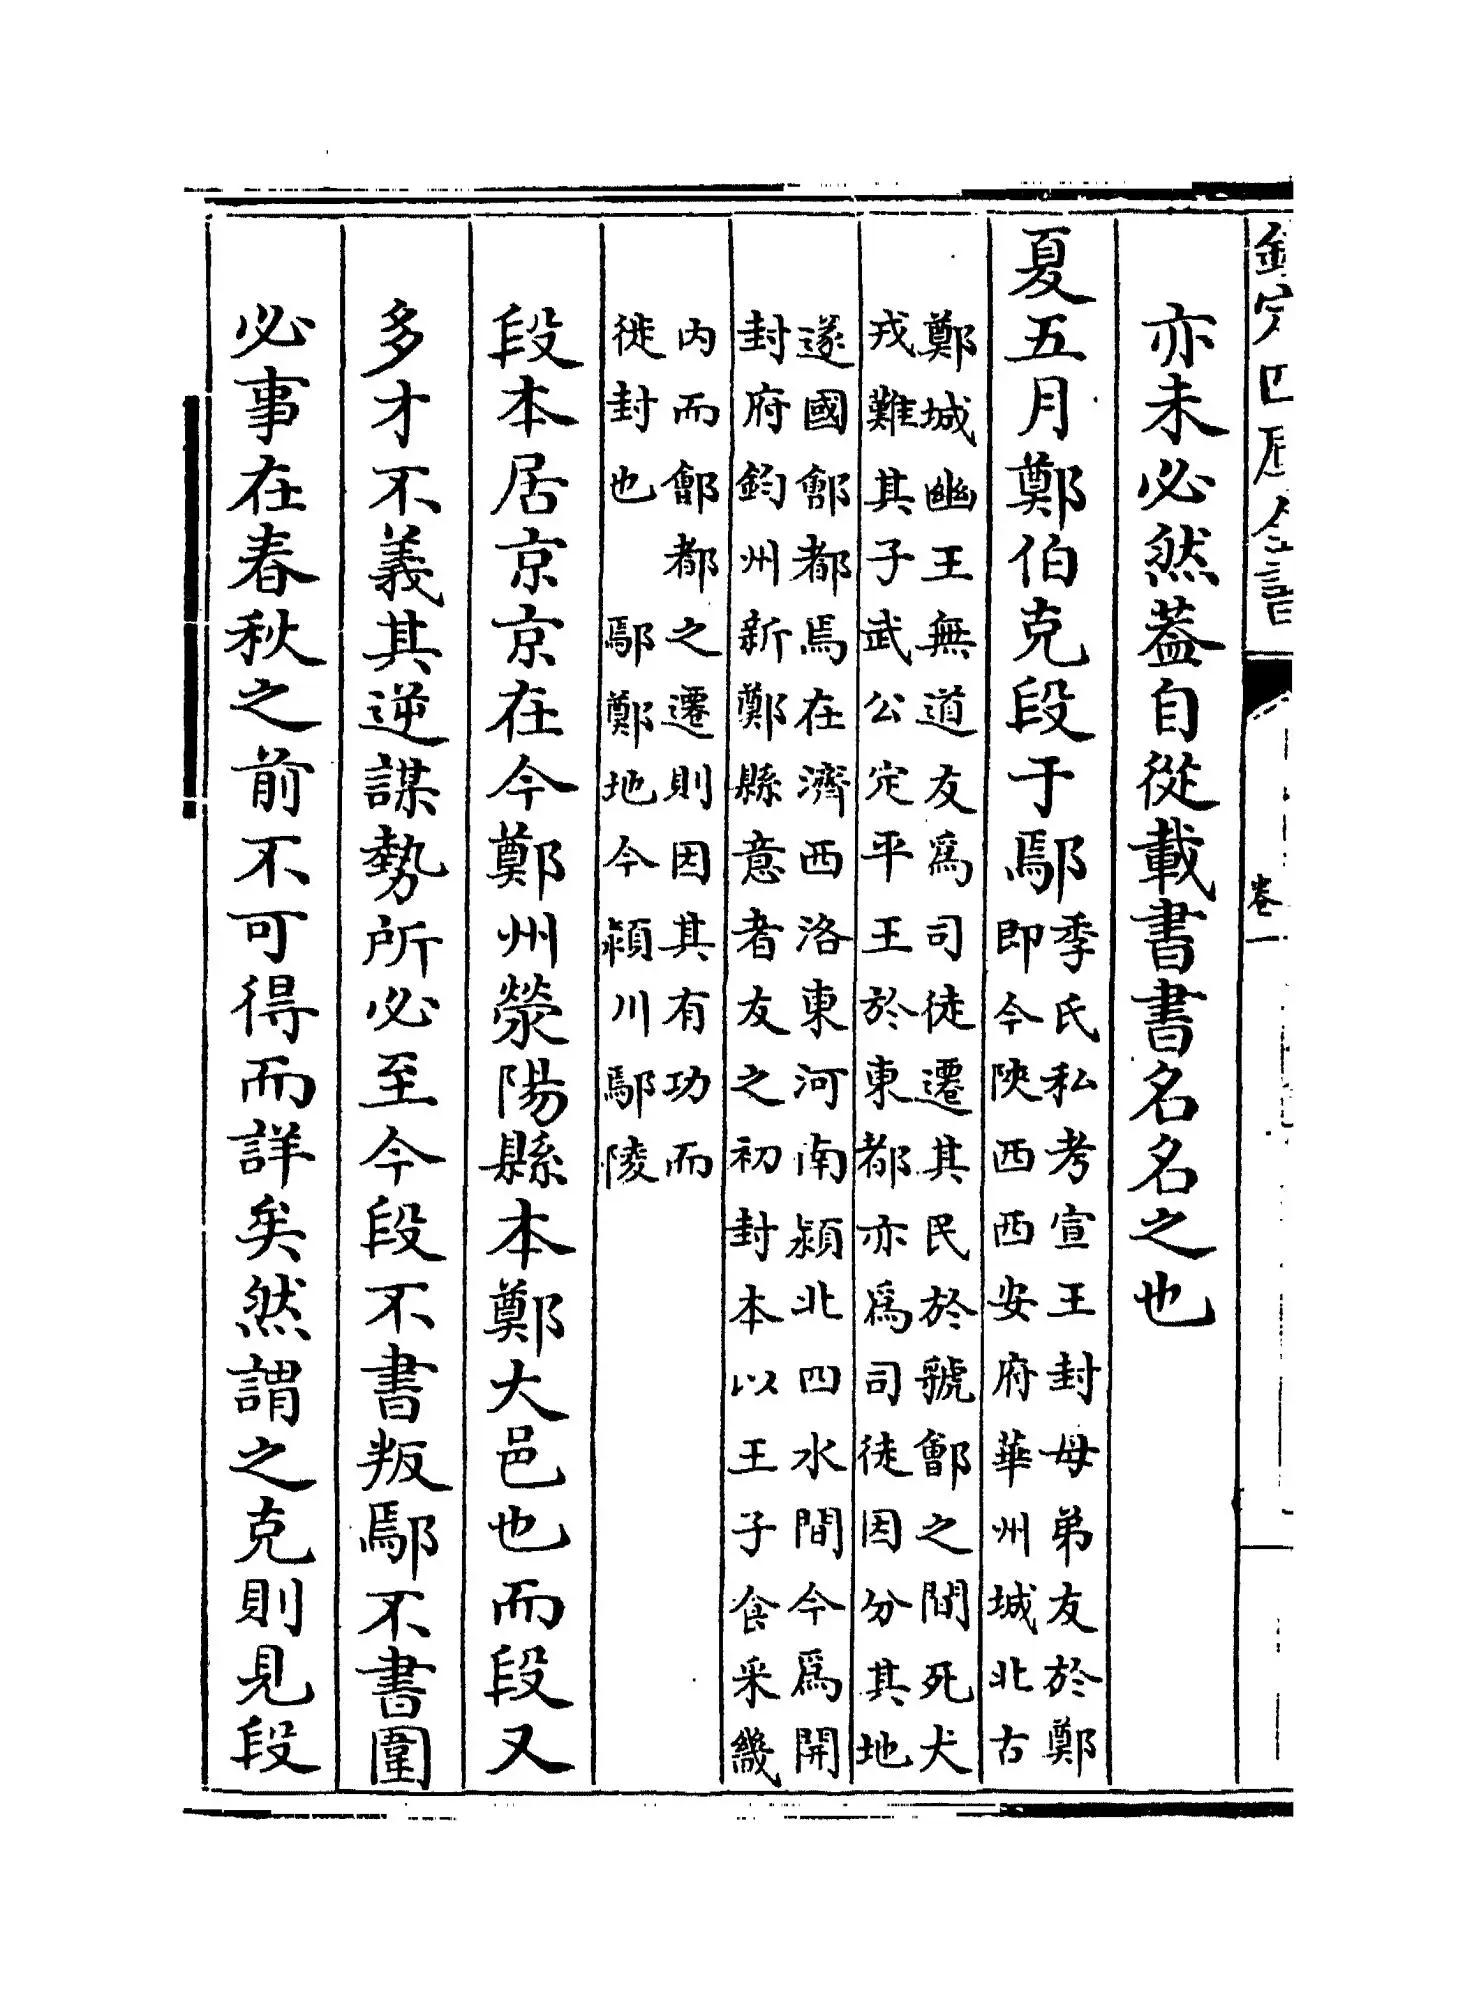 欽定四庫全書
卷一
亦未必然蓋自從載書書名名之也
夏五月鄭伯克段于鄢
季氏私考宣王封母弟友於鄭
即今陜西西安府華州城北古
鄭城幽王無道友為司徒遷其民於虢鄶之間死犬
戎難其子武公定平王於東都亦為司徒因分其地
遂國鄶都焉在濟西洛東河南潁北四水間今為開
封府鈞州新鄭縣意者友之初封本以王子食采畿
内而鄶都之遷則因其有功而
徙封也 鄢鄭地今潁川鄢陵
段本居京京在今鄭州滎陽縣本鄭大邑也而段又
多才不義其逆謀勢所必至今段不書叛鄢不書圍
必事在春秋之前不可得而詳矣然謂之克則見段